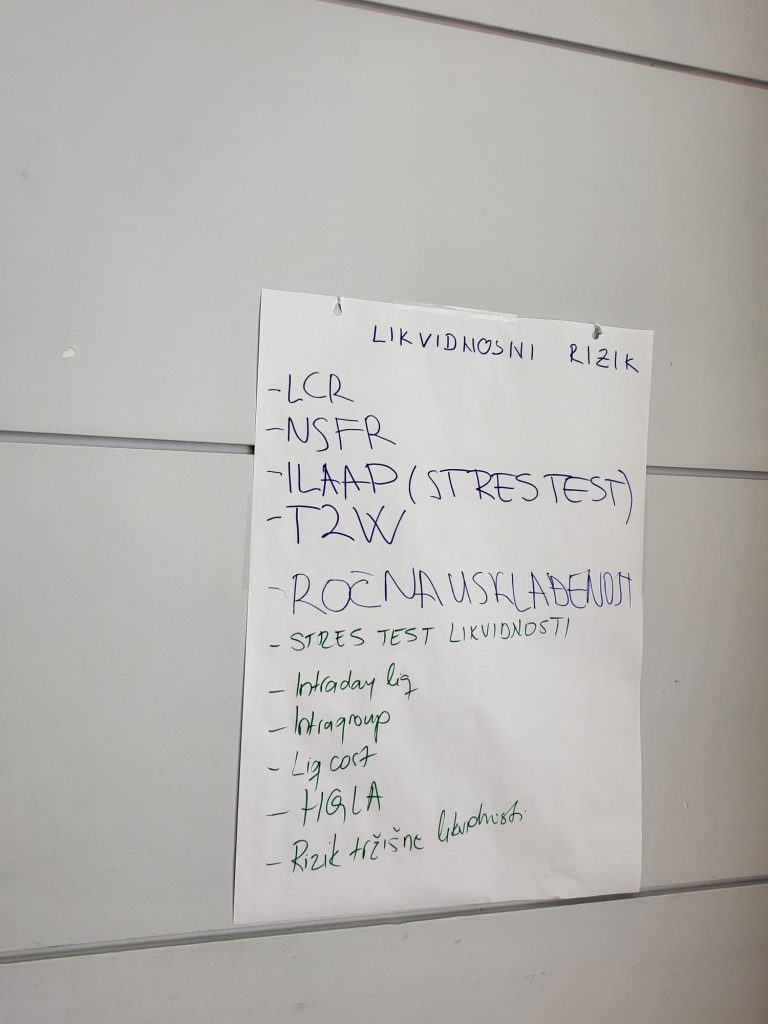 LIKVIDNOSNI RIZIK
- LCR
- NSFR
- ILAAP (STRES TEST)
- T2W
- ROČNA USKLAĐENOST
- STRES TEST LIKVIDNOSTI
- Intraday liq
- Intragroup
- Liq cost
- HQLA
- Rizik tržišne likvidnosti